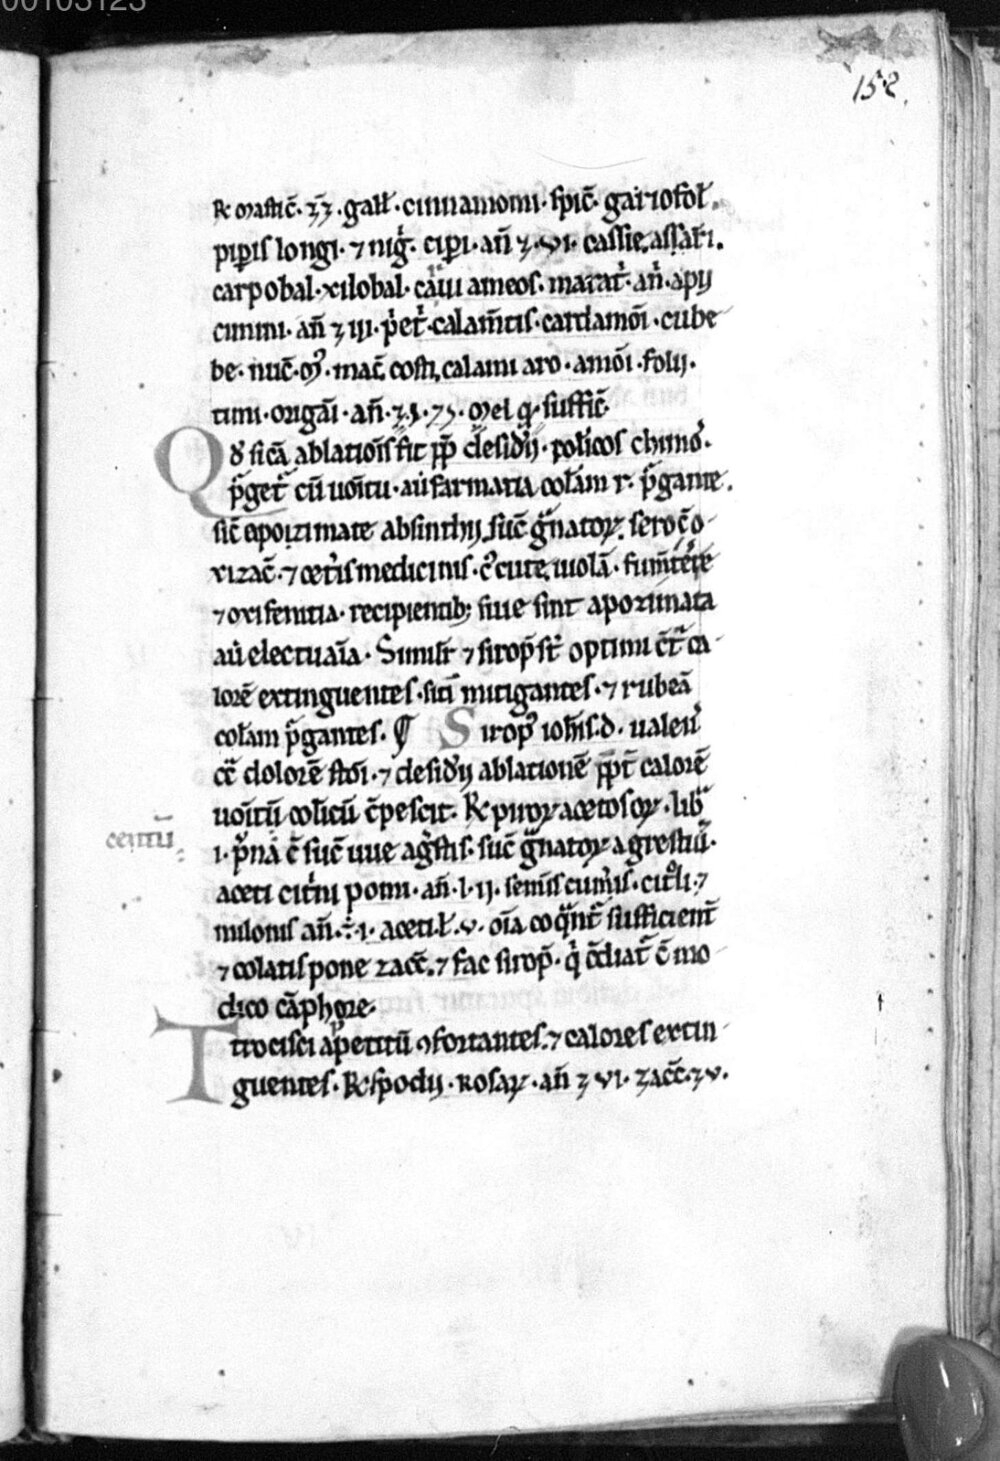 00103123
152.
℞ mastic̄. ʒʒ. gall̄. cinnamomi. spic̄. gariofol̄.
pip̄is longi. ⁊ niḡ. cip̄i. an̄ ʒ. vi. cassie, assari.
carpobal. xilobal. carui ameos. marat̄. an̄. apij
cimini. an̄ ʒ iij. petr̄. calam̄tis. cardamōi. cube
be. nuc̄. mꝰ. mac̄. costi, calami aro. amōi. folij.
timi. origāi. an̄. mel q̄. suffic̄.
Qđ sicā ablatiōis fit ꝓp̄ desiđij. colīcos chimoꝝ.
p̄get̄ cū uoītu. aū farmatia col̄am r. p̄gante.
sic̄ apozimate absinthij, suc̄ gͣnatoꝝ. sero c̄ o
xizac̄. ⁊ cet̄is medicinis. c̄ cucute, uiolā. fum̄tere
⁊ oxifenitia. recipientibꝫ siue sint apozimata
aū electuaīa. Similr̄ ⁊ sirop̄ st̄ optimi c̄tͣ ca
lorē extinguentes. sitī mitigantes. ⁊ rubeā
col̄am p̄gantes. ¶ Siropꝰ ioh̄is. d. ualen̄
c̄ dolorē stōi. ⁊ desiđij ablationē ꝓpt̄ calorē
uoītū colīcū c̄pescit. ℞ piroꝝ acetosoꝝ. lib̄
i. p̄na c̄ suc̄ uue aḡstis. suc̄ gͣnatoꝝ agrestiū.
centū
aceti citͥni pomi. an̄. l. ij. semīs cum̄is. citͦli. ⁊
milonis an̄. ÷. i. aceti. l̄. v. oīa coqͣnt̄ sufficient̄
⁊ colatis pone zacc̄. ⁊ fac sirop̄. qͥ c̄diat̄ c̄ mo
dico cāphore.
Trocisci apetitū ꝯfortantes. ⁊ calores extin
guentes. ℞ spodij. rosaꝝ. an̄ ʒ vi. zacc̄. ʒ v.